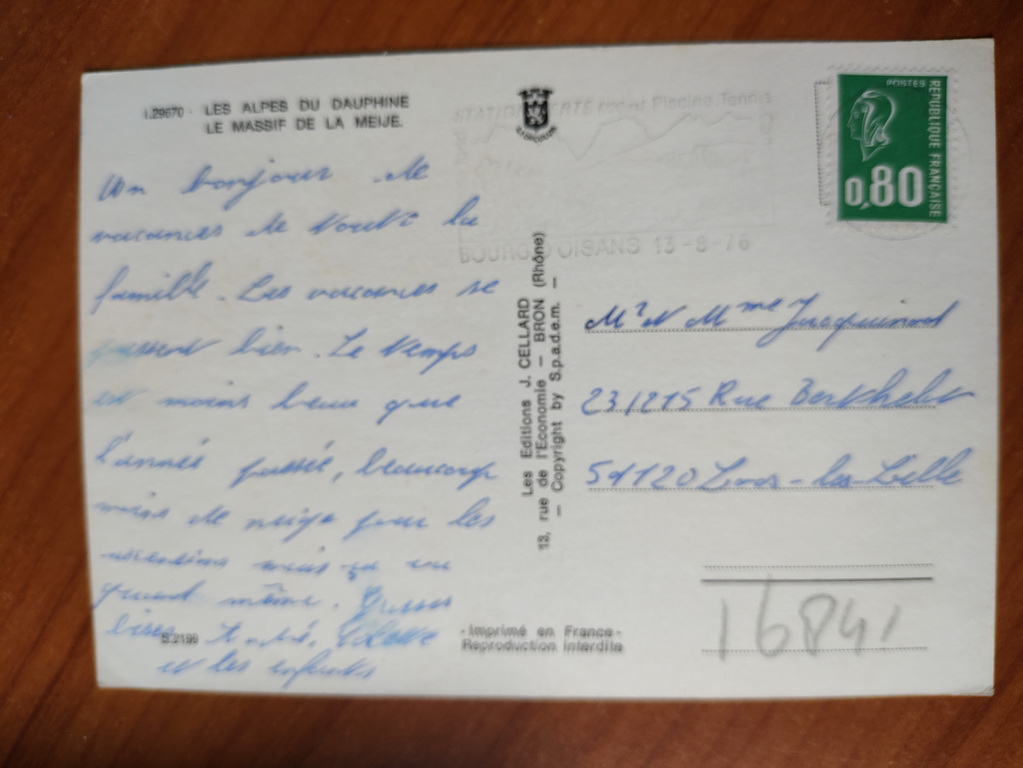 I.29670 - LES ALPES DU DAUPHINE
LE MASSIF DE LA MEIJE.
Un bonjour de
vacances de toute la
famille. Les vacances se
passent bien. Le temps
est moins beau que
l'année passée, beaucoup
moins de neige pour les
ascensions mais ça va
quand même. Grosses
bises
et les enfants
S.2199
STATION VERTE et Piscine, Tennis
BOURG D'OISANS 13-8-76
Les Editions J. CELLARD
13, rue de l'Economie - BRON (Rhône)
- Copyright by S.p.a.d.e.m. -
- Imprimé en France -
Reproduction interdite
POSTES
REPUBLIQUE FRANÇAISE
0,80
Mr & Mme Jacquinot
23/215 Rue Berthelot
59120 Loos-les-Lille
16841